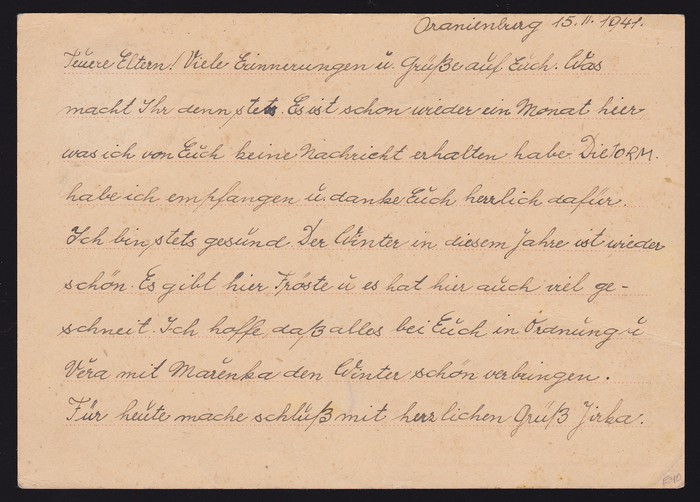 Oranienburg 15.II.1941.
Teuere Eltern! Viele Erinnerungen u. Grüße auf Euch. Was
macht Ihr denn stets. Es ist schon wieder ein Monat hier
was ich von Euch keine Nachricht erhalten habe. Die 10RM.
habe ich empfangen u. danke Euch herrlich dafür.
Ich bin stets gesund. Der Winter in diesem Jahre ist wieder
schön. Es gibt hier Fröste u es hat hier auch viel ge-
schneit. Ich hoffe, daß alles bei Euch in Ordnung u
Věra mit Mařenka den Winter schön verbringen.
Für heute mache schluß mit herzlichen Gruß Jirka.